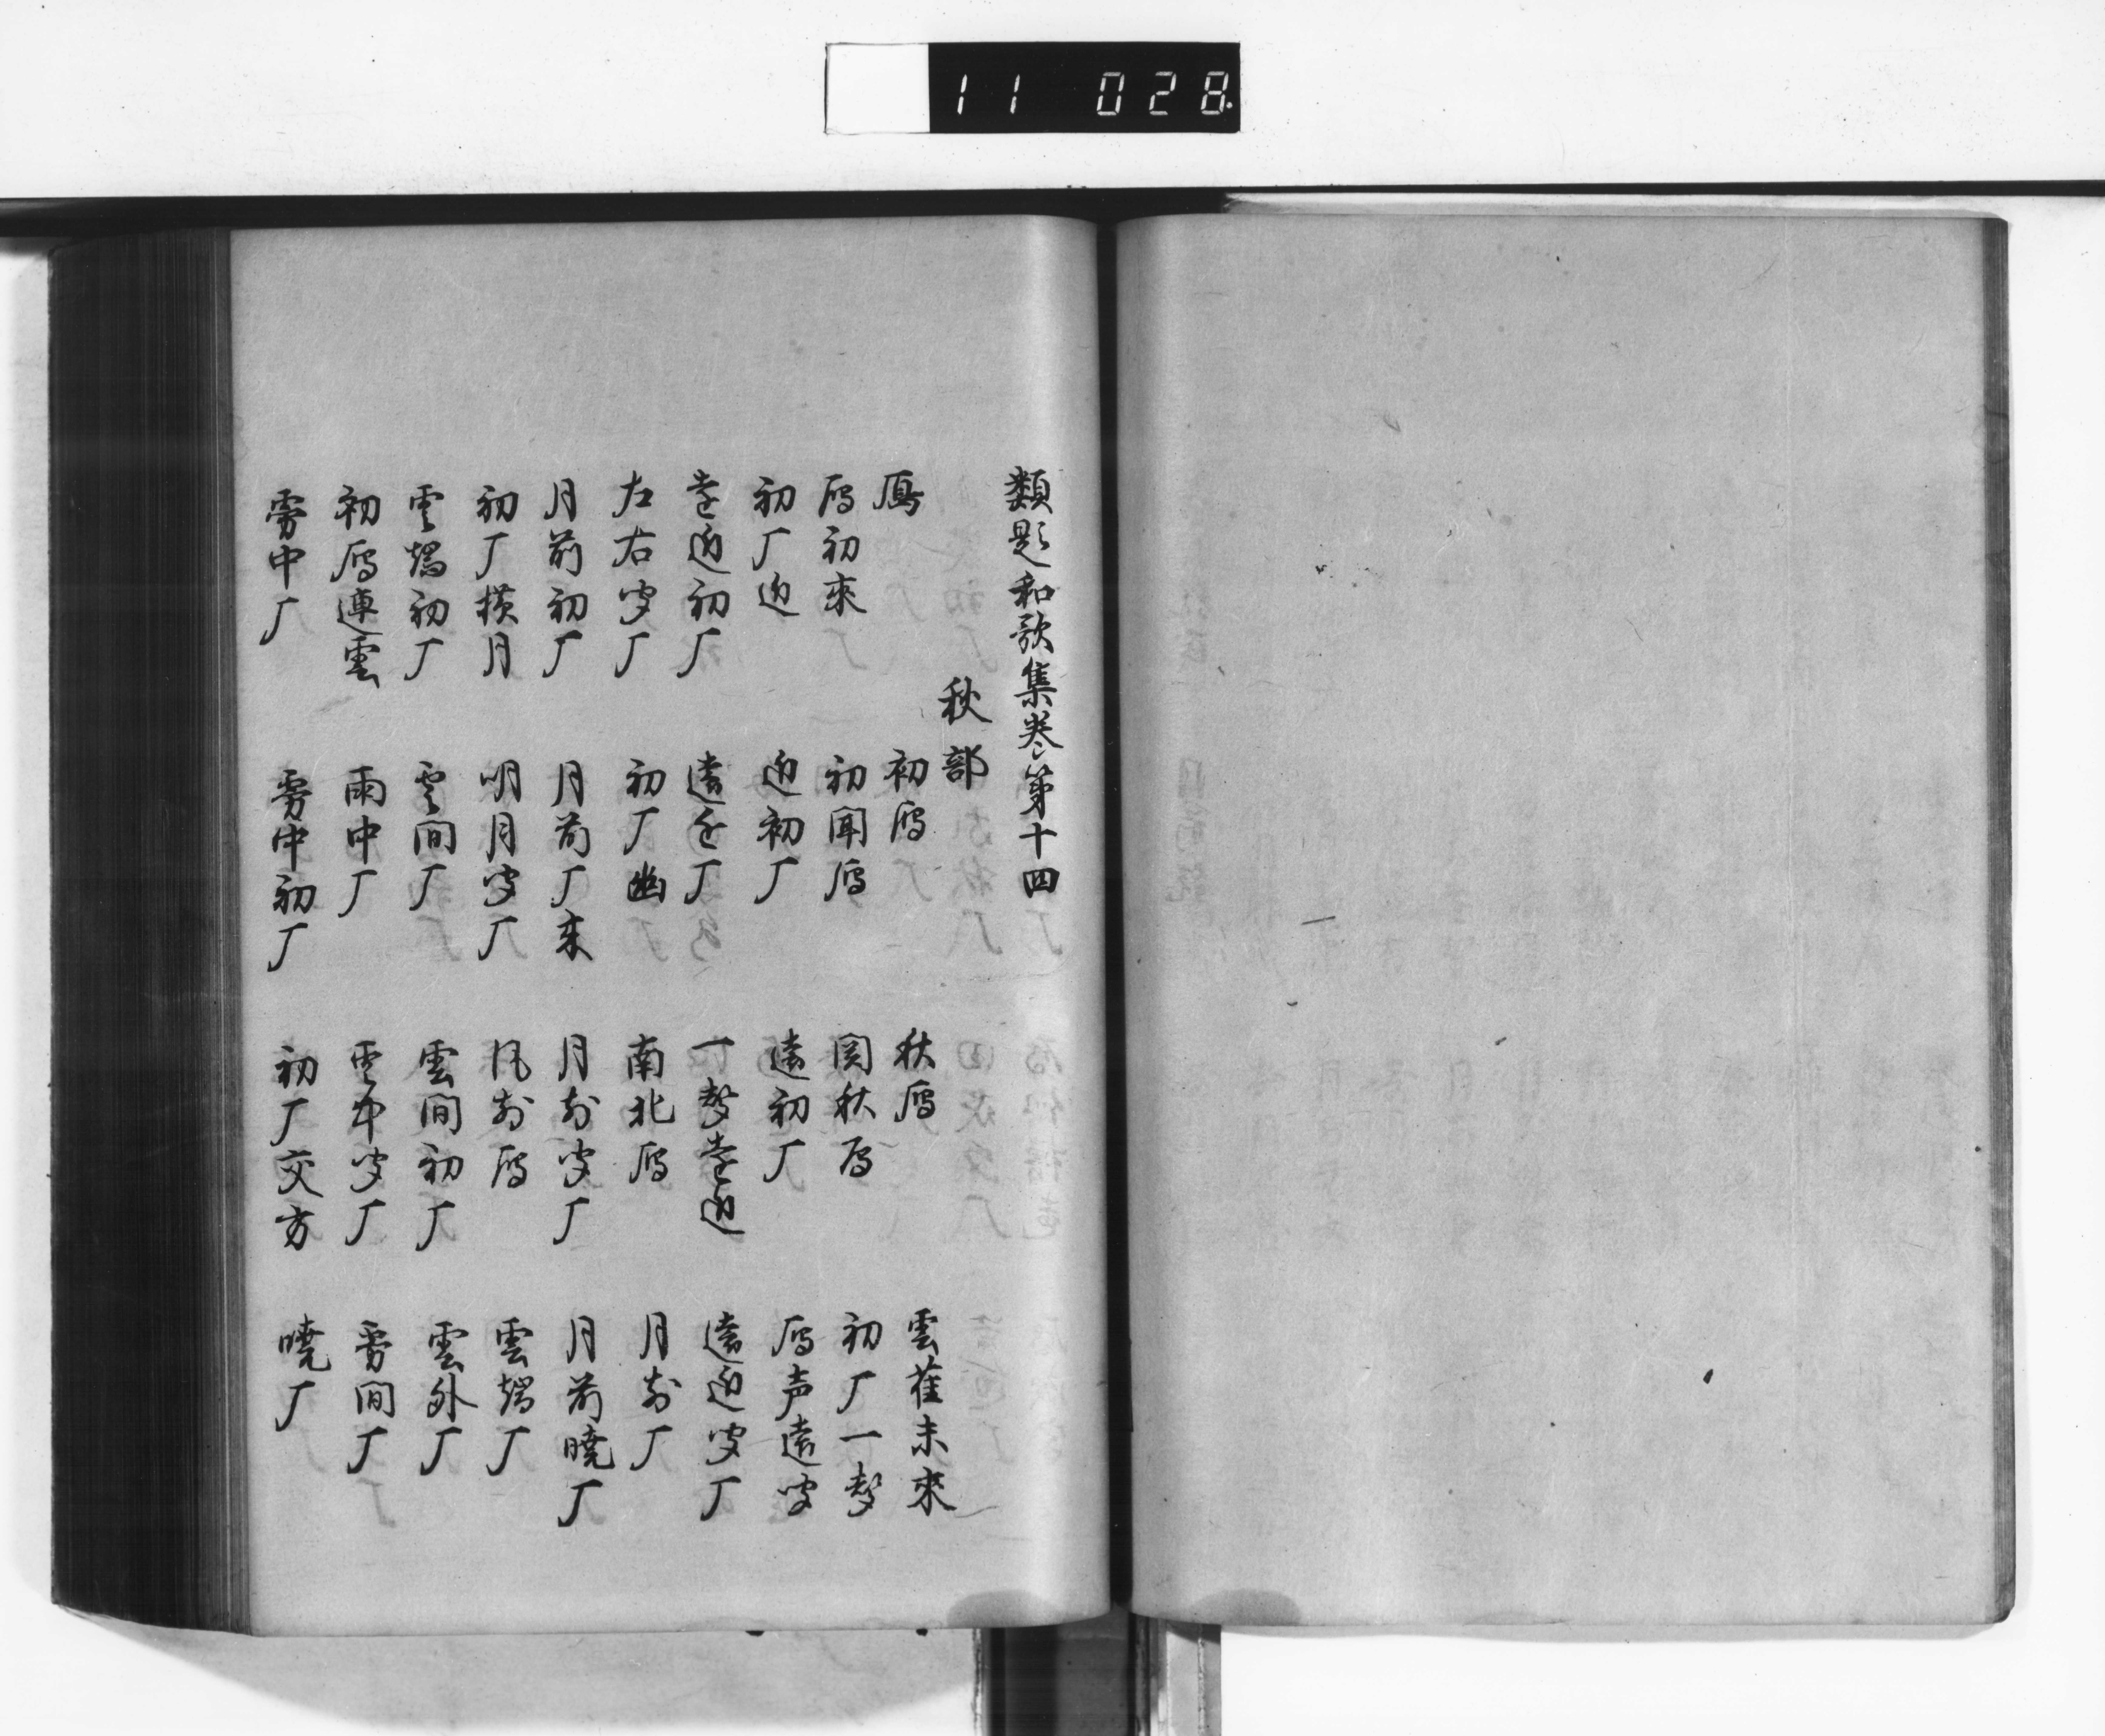 11 028
類題和歌集巻第十四
秋部
鴈 初鴈 秋鴈 雲雁未來
鴈初來 初聞鴈 関秋鴈 初厂一聲
初厂近 近初厂 遠初厂 鴈声遠聞
遠近初厂 遠近厂 一聲遠近 遠近聞厂
左右聞厂 初厂幽 南北鴈 月前厂
月前初厂 月前厂来 月前聞厂 月前暁厂
初厂横月 明月聞厂 風前鴈 雲端厂
雲端初厂 雲間厂 雲間初厂 雲外厂
初鴈連雲 雨中厂 雨中聞厂 霧間厂
霧中厂 霧中初厂 初厂交方 暁厂